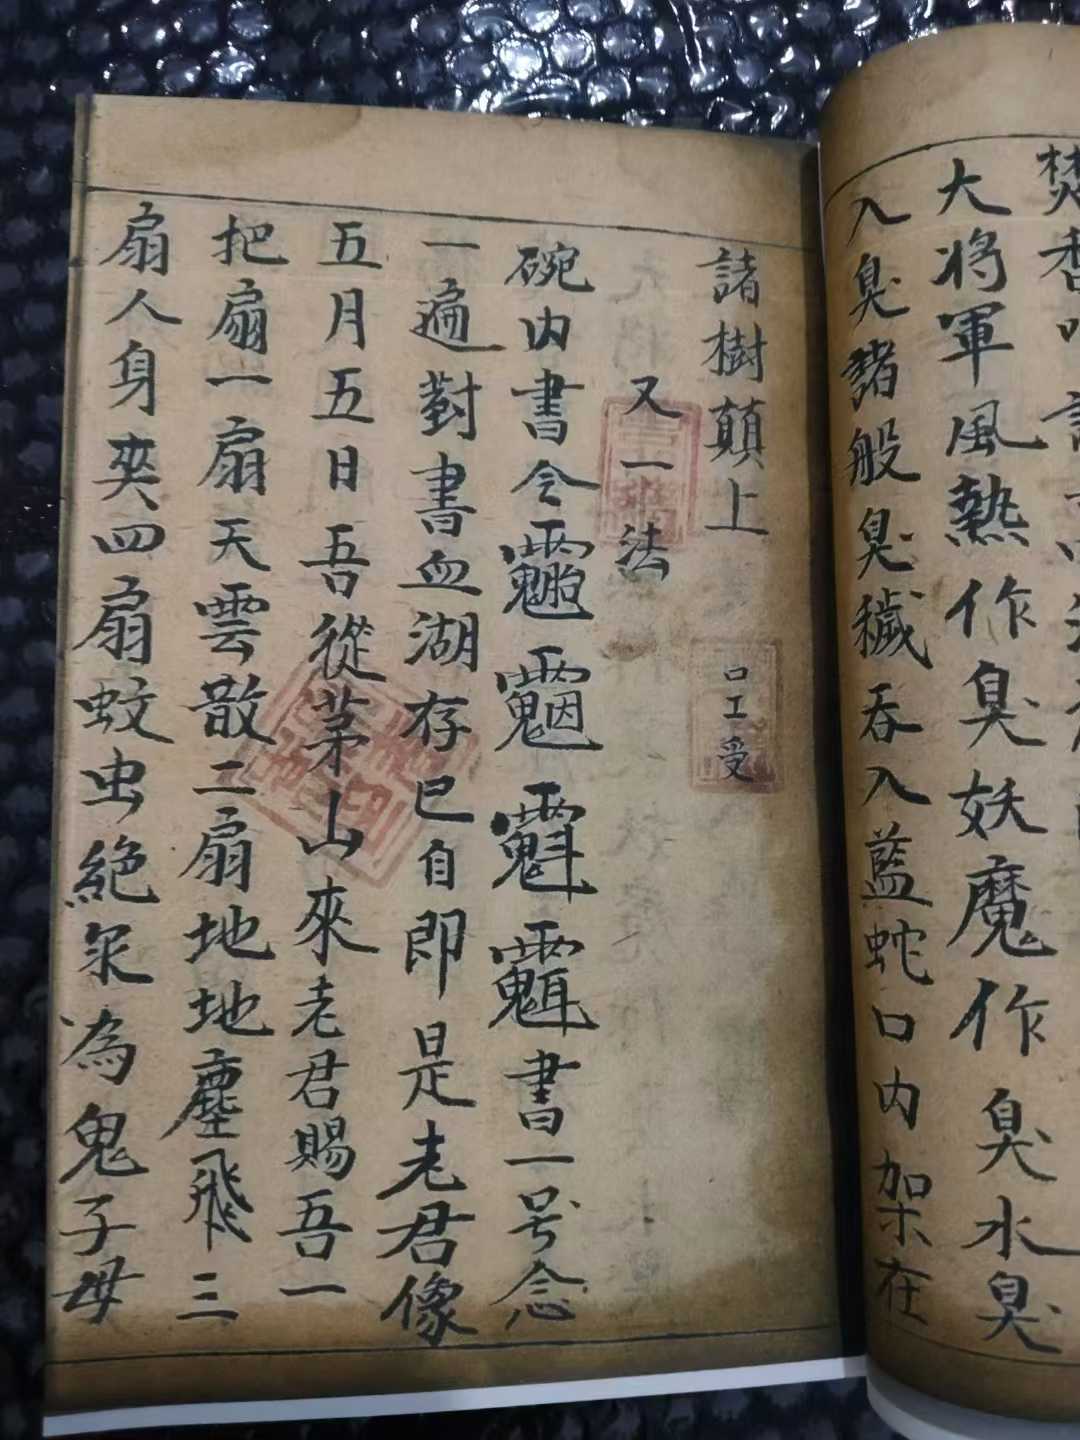 大將軍風熱作臭妖魔作臭水臭
入臭諸般臭穢吞入藍蛇口内架在
諸樹顛上
口工受
又一法
碗内書令書一号念
一遍對書血湖存已自即是老君像
五月五日吾從茅山來老君賜吾一
把扇一扇天雲散二扇地地塵飛三
扇人身爽四扇蚊虫絶永為鬼子母